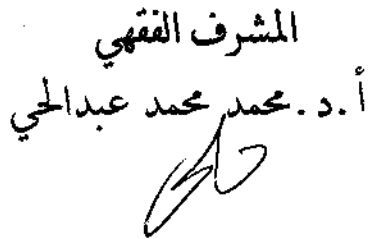 المشرف الفقهي
أ.د. محمد محمد عبدالحي